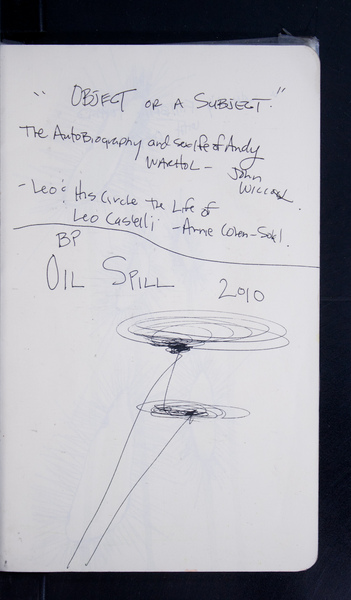 "OBJECT OR A SUBJECT."
The AutoBiography and sexlife of Andy
WARHOL - John
WILCOCK.
- Leo & His Circle The Life of
Leo Castelli - Annie Cohen-Solal.
BP
OIL SPILL 2010